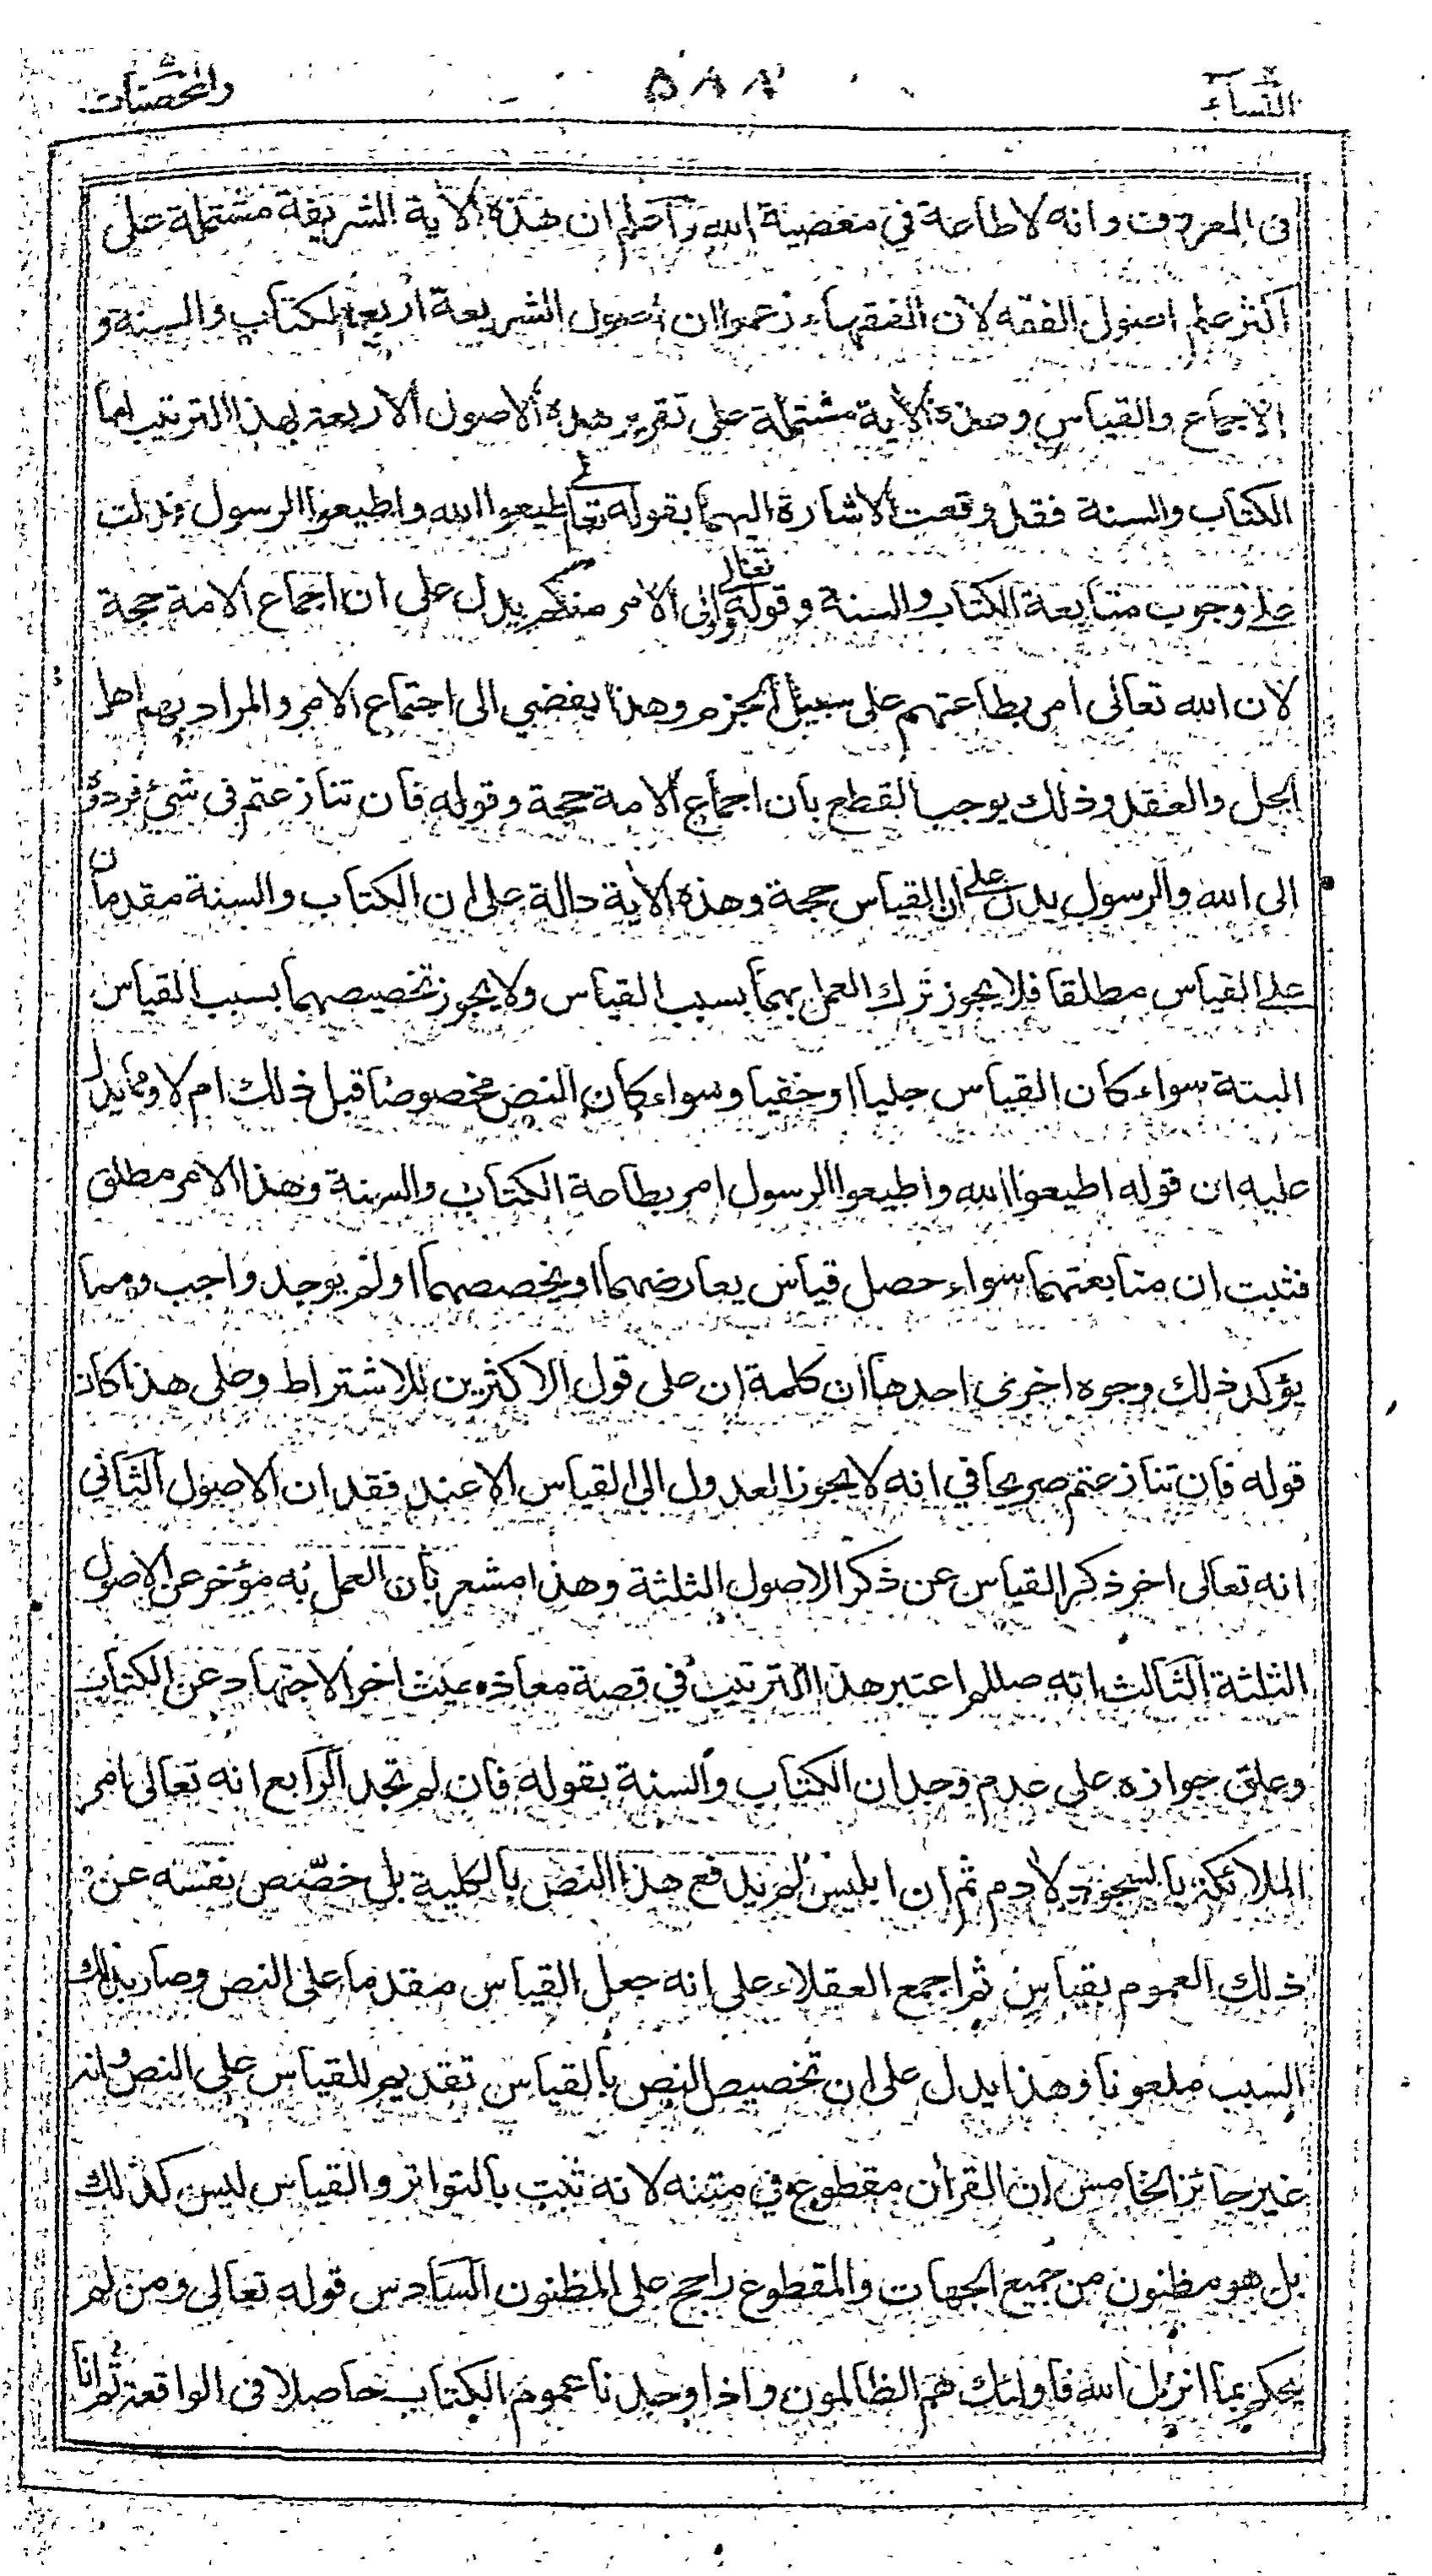 النسآء ٥٨٧ والمحصنات
فى المعروف وانه لاطاعة في معصية الله وآعلم ان هذه الاية الشريفة مشتملة على
اكثر علم اصول الفقه لان الفقهاء زعموا ان اصول الشريعة اربع الكتاب والسنة و
الاجماع والقياس وهذه الاية مشتملة على تقرير هذه الاصول الاربعة بهذا الترتيب اما
الكتاب والسنة فقد وقعت الاشارة اليهما بقوله تعالى اطيعوا الله واطيعوا الرسول فدلت
على وجوب متابعة الكتاب والسنة وقوله تعالى واولى الامر منكم يدل على ان اجماع الامة حجة
لان الله تعالى امر بطاعتهم على سبيل الجزم وهذا يفضي الى اجتماع الامر والمراد بهم اهل
الحل والعقد وذلك يوجب القطع بان اجماع الامة حجة وقوله فان تنازعتم فى شئ فردوه
الى الله والرسول يدل على ان القياس حجة وهذه الاية دالة على ان الكتاب والسنة مقدمان
على القياس مطلقا فلا يجوز ترك العمل بهما بسبب القياس ولا يجوز تخصيصهما بسبب القياس
البتة سواء كان القياس جليا او خفيا وسواء كان النص مخصوصا قبل ذلك ام لا ومما يدل
عليه ان قوله اطيعوا الله واطيعوا الرسول امر بطاعة الكتاب والسنة وهذا الامر مطلق
فثبت ان متابعتهما سواء حصل قياس يعارضهما او يخصصهما او لم يوجد واجب ومما
يؤكد ذلك وجوه اخرى احدها ان كلمة ان على قول الاكثرين للاشتراط وعلى هذا كان
قوله فان تنازعتم صريحا في انه لا يجوز العدول الى القياس الا عند فقدان الاصول الثاني
انه تعالى اخر ذكر القياس عن ذكر الاصول الثلثة وهذا مشعر بان العمل به مؤخر عن الاصول
الثلثة الثالث انه صللم اعتبر هذا الترتيب في قصة معاذه حيث اخر الاجتهاد عن الكتاب
وعلق جوازه على عدم وجدان الكتاب والسنة بقوله فان لم تجد الرابع انه تعالى امر
الملائكة بالسجود لادم ثم ان ابليس لم يدفع هذا النص بالكلية بل خصّص نفسه عن
ذلك العموم بقياس ثم اجمع العقلاء على انه جعل القياس مقدما على النص وصار بذلك
السبب ملعونا وهذا يدل على ان تخصيص النص بالقياس تقديم للقياس على النص وانه
غير جائز الخامس ان القرأن مقطوع في متنه لانه ثبت بالتواتر والقياس ليس كذلك
بل هو مظنون من جميع الجهات والمقطوع راجح على المظنون السادس قوله تعالى ومن لم
يحكم بما انزل الله فاولئك هم الظالمون واذا وجدنا عموم الكتاب حاصلا فى الواقعة ثم انا